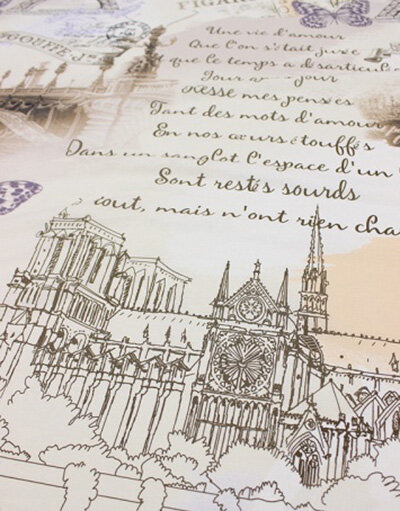 FIGARO
GOUFFE-Jne
Une vie d'amour
Que l'on s'était jurée
que le temps a désarticul
Jour jour
mes pensées
Tant des mots d'amour
En nos cœurs étouffés
Dans un sanglot l'espace d'un
Sont restés sourds
tout, mais n'ont rien cha